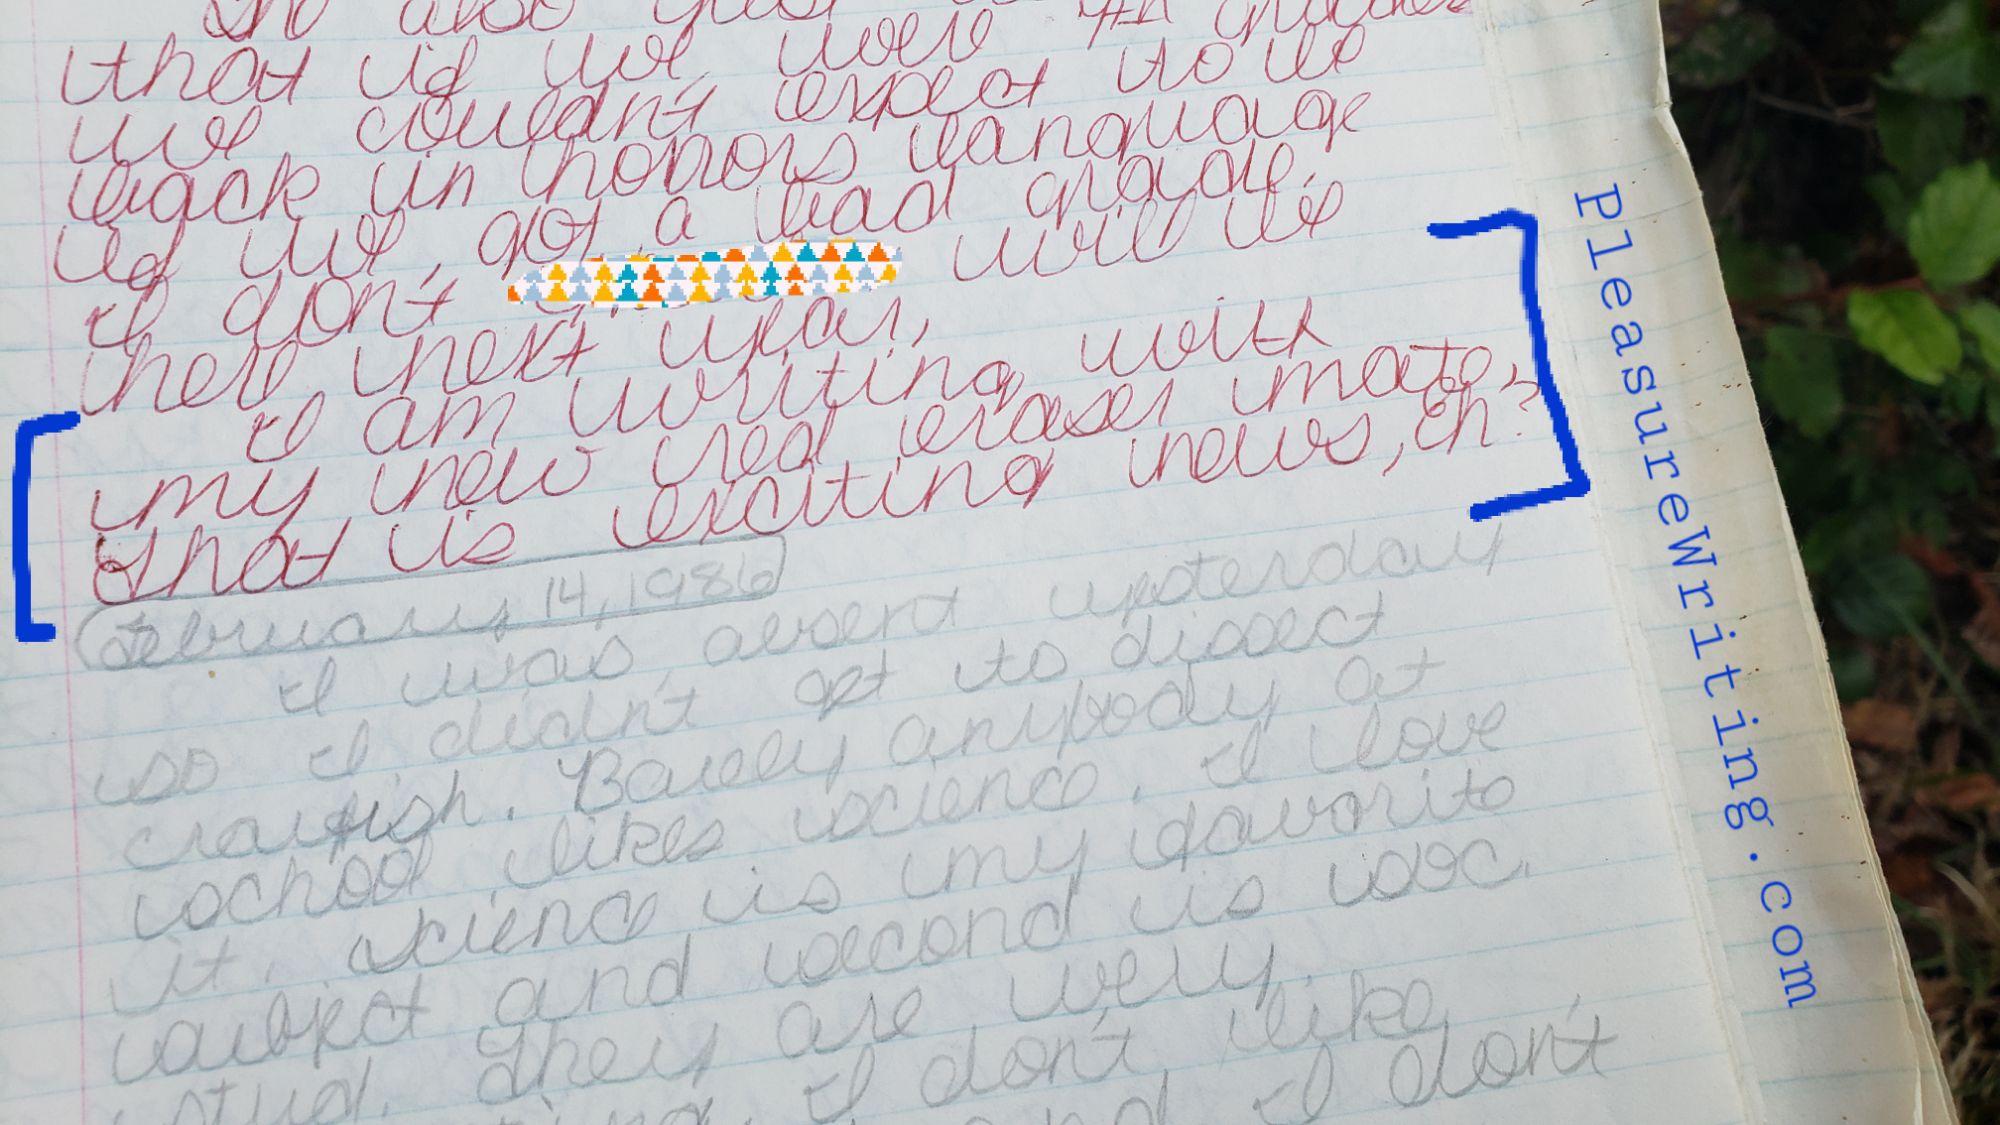 that if we were 7th graders
we couldn't expect to be
back in honors language
if we got a bad grade.
I don't will be
here next year,
I am writing with
my new red eraser mate,
that is exciting news, eh?
February 14, 1986
I was absent yesterday
so I didn't get to dissect
crayfish. Barely anybody at
school likes science. I love
it. science is my favorite
subject and second is soc.
stud. They are very
I don't like
and I don't
PleasureWriting.com